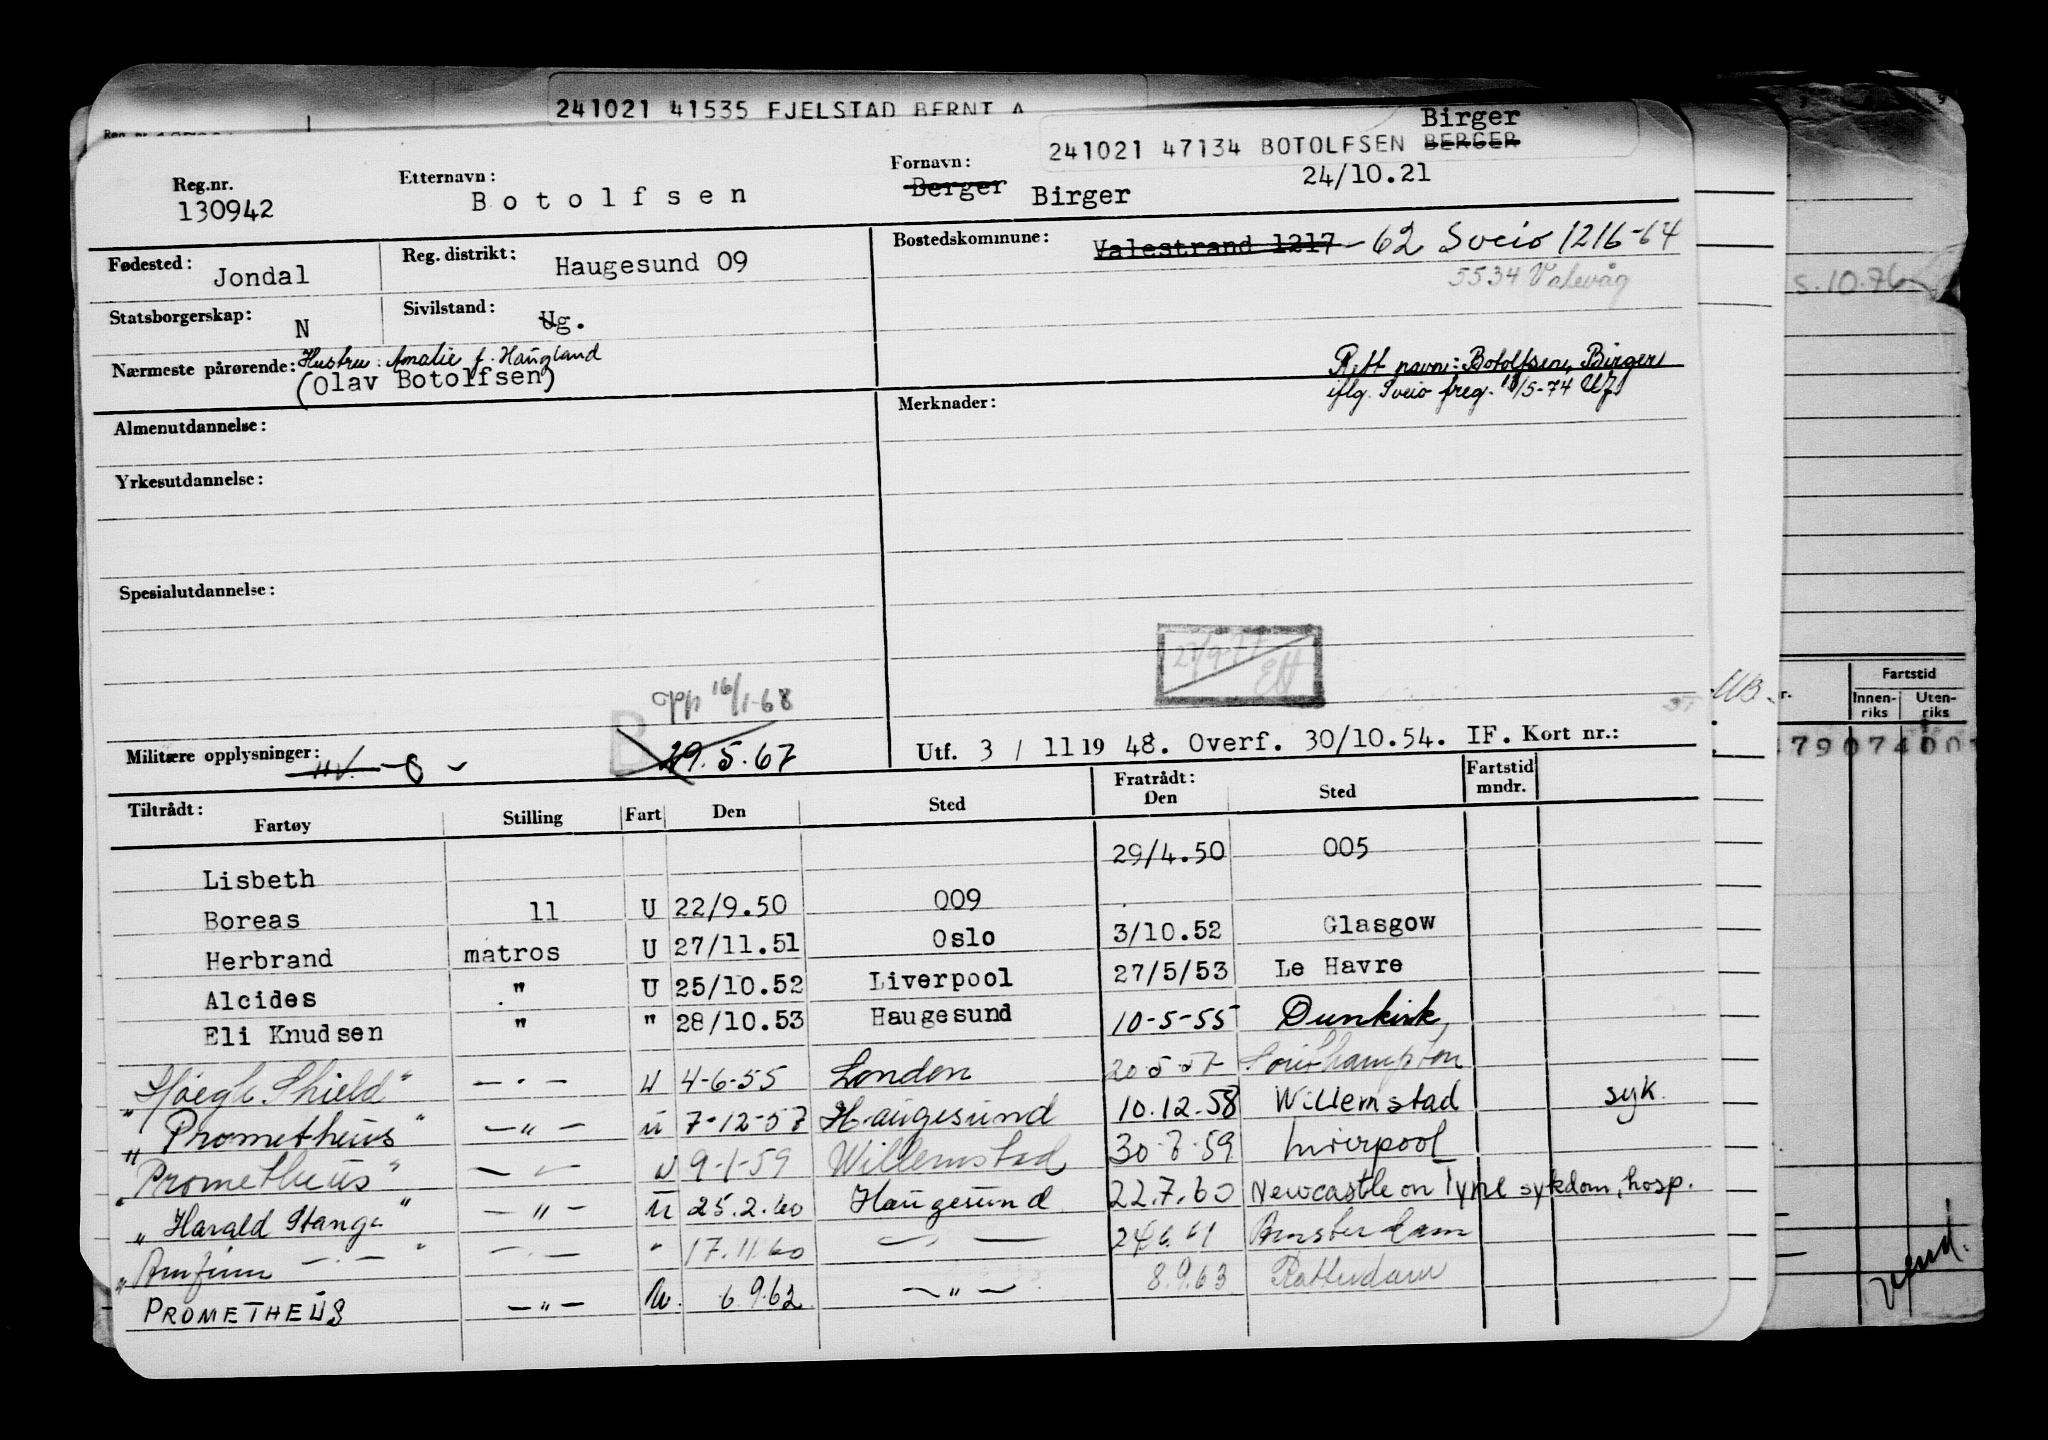 241021 41535 FJELSTAD BERNT A
Birger
241021 47134 BOTOLFSEN BERGER
Reg.nr. 130942
Etternavn: Botolfsen
Fornavn: Berger Birger
24/10.21
Fødested: Jondal
Reg. distrikt: Haugesund 09
Bostedskommune: Valestrand 1217 - 62 Sveio 1216-64
5534 Valevåg
S.10.76
Statsborgerskap: N
Sivilstand: Ug.
Nærmeste pårørende: Hustru: Amalie f. Haugland
(Olav Botolfsen)
Rett navn: Botolfsen, Birger
iflg. Sveio freg. /5-74
Almenutdannelse:
Merknader:
Yrkesutdannelse:
Spesialutdannelse:
16/1-68
29.5.67
Militære opplysninger:
Utf. 3 / 11 19 48. Overf. 30/10.54. IF. Kort nr.:
Fartstid
Innen-riks Uten-riks
Tiltrådt: Fartøy Stilling Fart Den Sted Fratrådt: Den Sted Fartstid mndr.
Lisbeth 29/4.50 005
Boreas 11 U 22/9.50 009
Herbrand matros U 27/11.51 Oslo 3/10.52 Glasgow
Alcides " U 25/10.52 Liverpool 27/5/53 Le Havre
Eli Knudsen " " 28/10.53 Haugesund 10-5-55 Dunkirk
"Høegh Shield" -"- U 4-6-55 London 20-5-57 Southampton
"Prometheus" -"- u 7-12-57 Haugesund 10.12.58 Willemstad syk.
"Prometheus" -"- U 9-1-59 Willemstad 30-7-59 Liverpool
"Harald Stange" -"- u 25.2.60 Haugesund 22.7.60 Newcastle on Tyne sykdom, hosp.
"Arnfinn -"-" -"- " 17.11.60 -"- 24.6.61 Amsterdam
PROMETHEUS -"- U. 6.9.62 -"- 8.9.63 Rotterdam